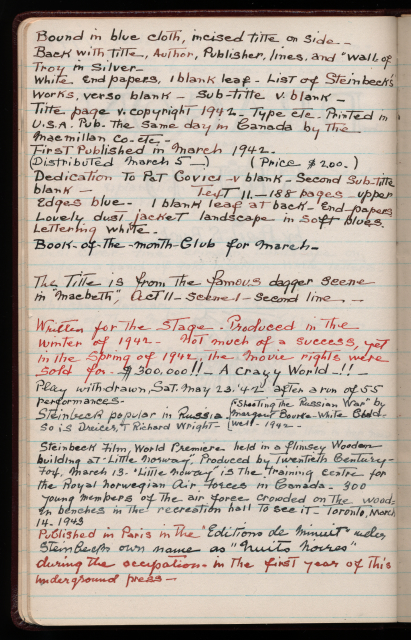 Bound in blue cloth, incised title on side--
Back with title, Author, Publisher, lines, and "wall of
Troy in Silver-
White End papers, 1 blank leaf - List of Steinbeck's
Works, verso blank - Sub-title v. blank-
Title page v. copyright 1942 - Type etc. Printed in
U.S.A. Pub. the same day in Canada by the
Macmillan Co. etc.
First Published in March 1942.
(Distributed March 5-) (Price $2.00.)
Dedication To Pat Covici - v blank - Second Sub-title
blank - Text 11-188 pages upper
Edges blue. 1 blank leaf at back - End-papers
Lovely dust jacket landscape in soft blues.
Lettering white.
Book-of-the-month-Club for March-
The Title is from the famous dagger scene
in "Macbeth", Act II - Scene I - second line - -
Written for the Stage. Produced in the
winter of 1942 - Not much of a success, yet
in the spring of 1942, the movie rights were
sold for - $300,000!! - A crazy World -!! -
Play withdrawn, Sat. May 23. '42 after a run of 55
performances-
Steinbeck popular in Russia - "Shooting the Russian War" by
so is Dreiser, & Richard Wright - Margaret Bourke-White Caldwell - 1942 -
Steinbeck film, World Premiere held in a flimsy Wooden
building at "Little Norway", Produced by Twentieth Century-
Fox, March 13 - "Little Norway" is the training centre for
the Royal Norwegian Air forces in Canada - 300
young members of the air force crowded on the wood-
en benches in the recreation hall to see it - Toronto, March
14 - 1943
Published in Paris in the "Editions de minuit" under
Steinbeck's own name as "Nuits noires"
during the occupation - in the first year of this
underground press -